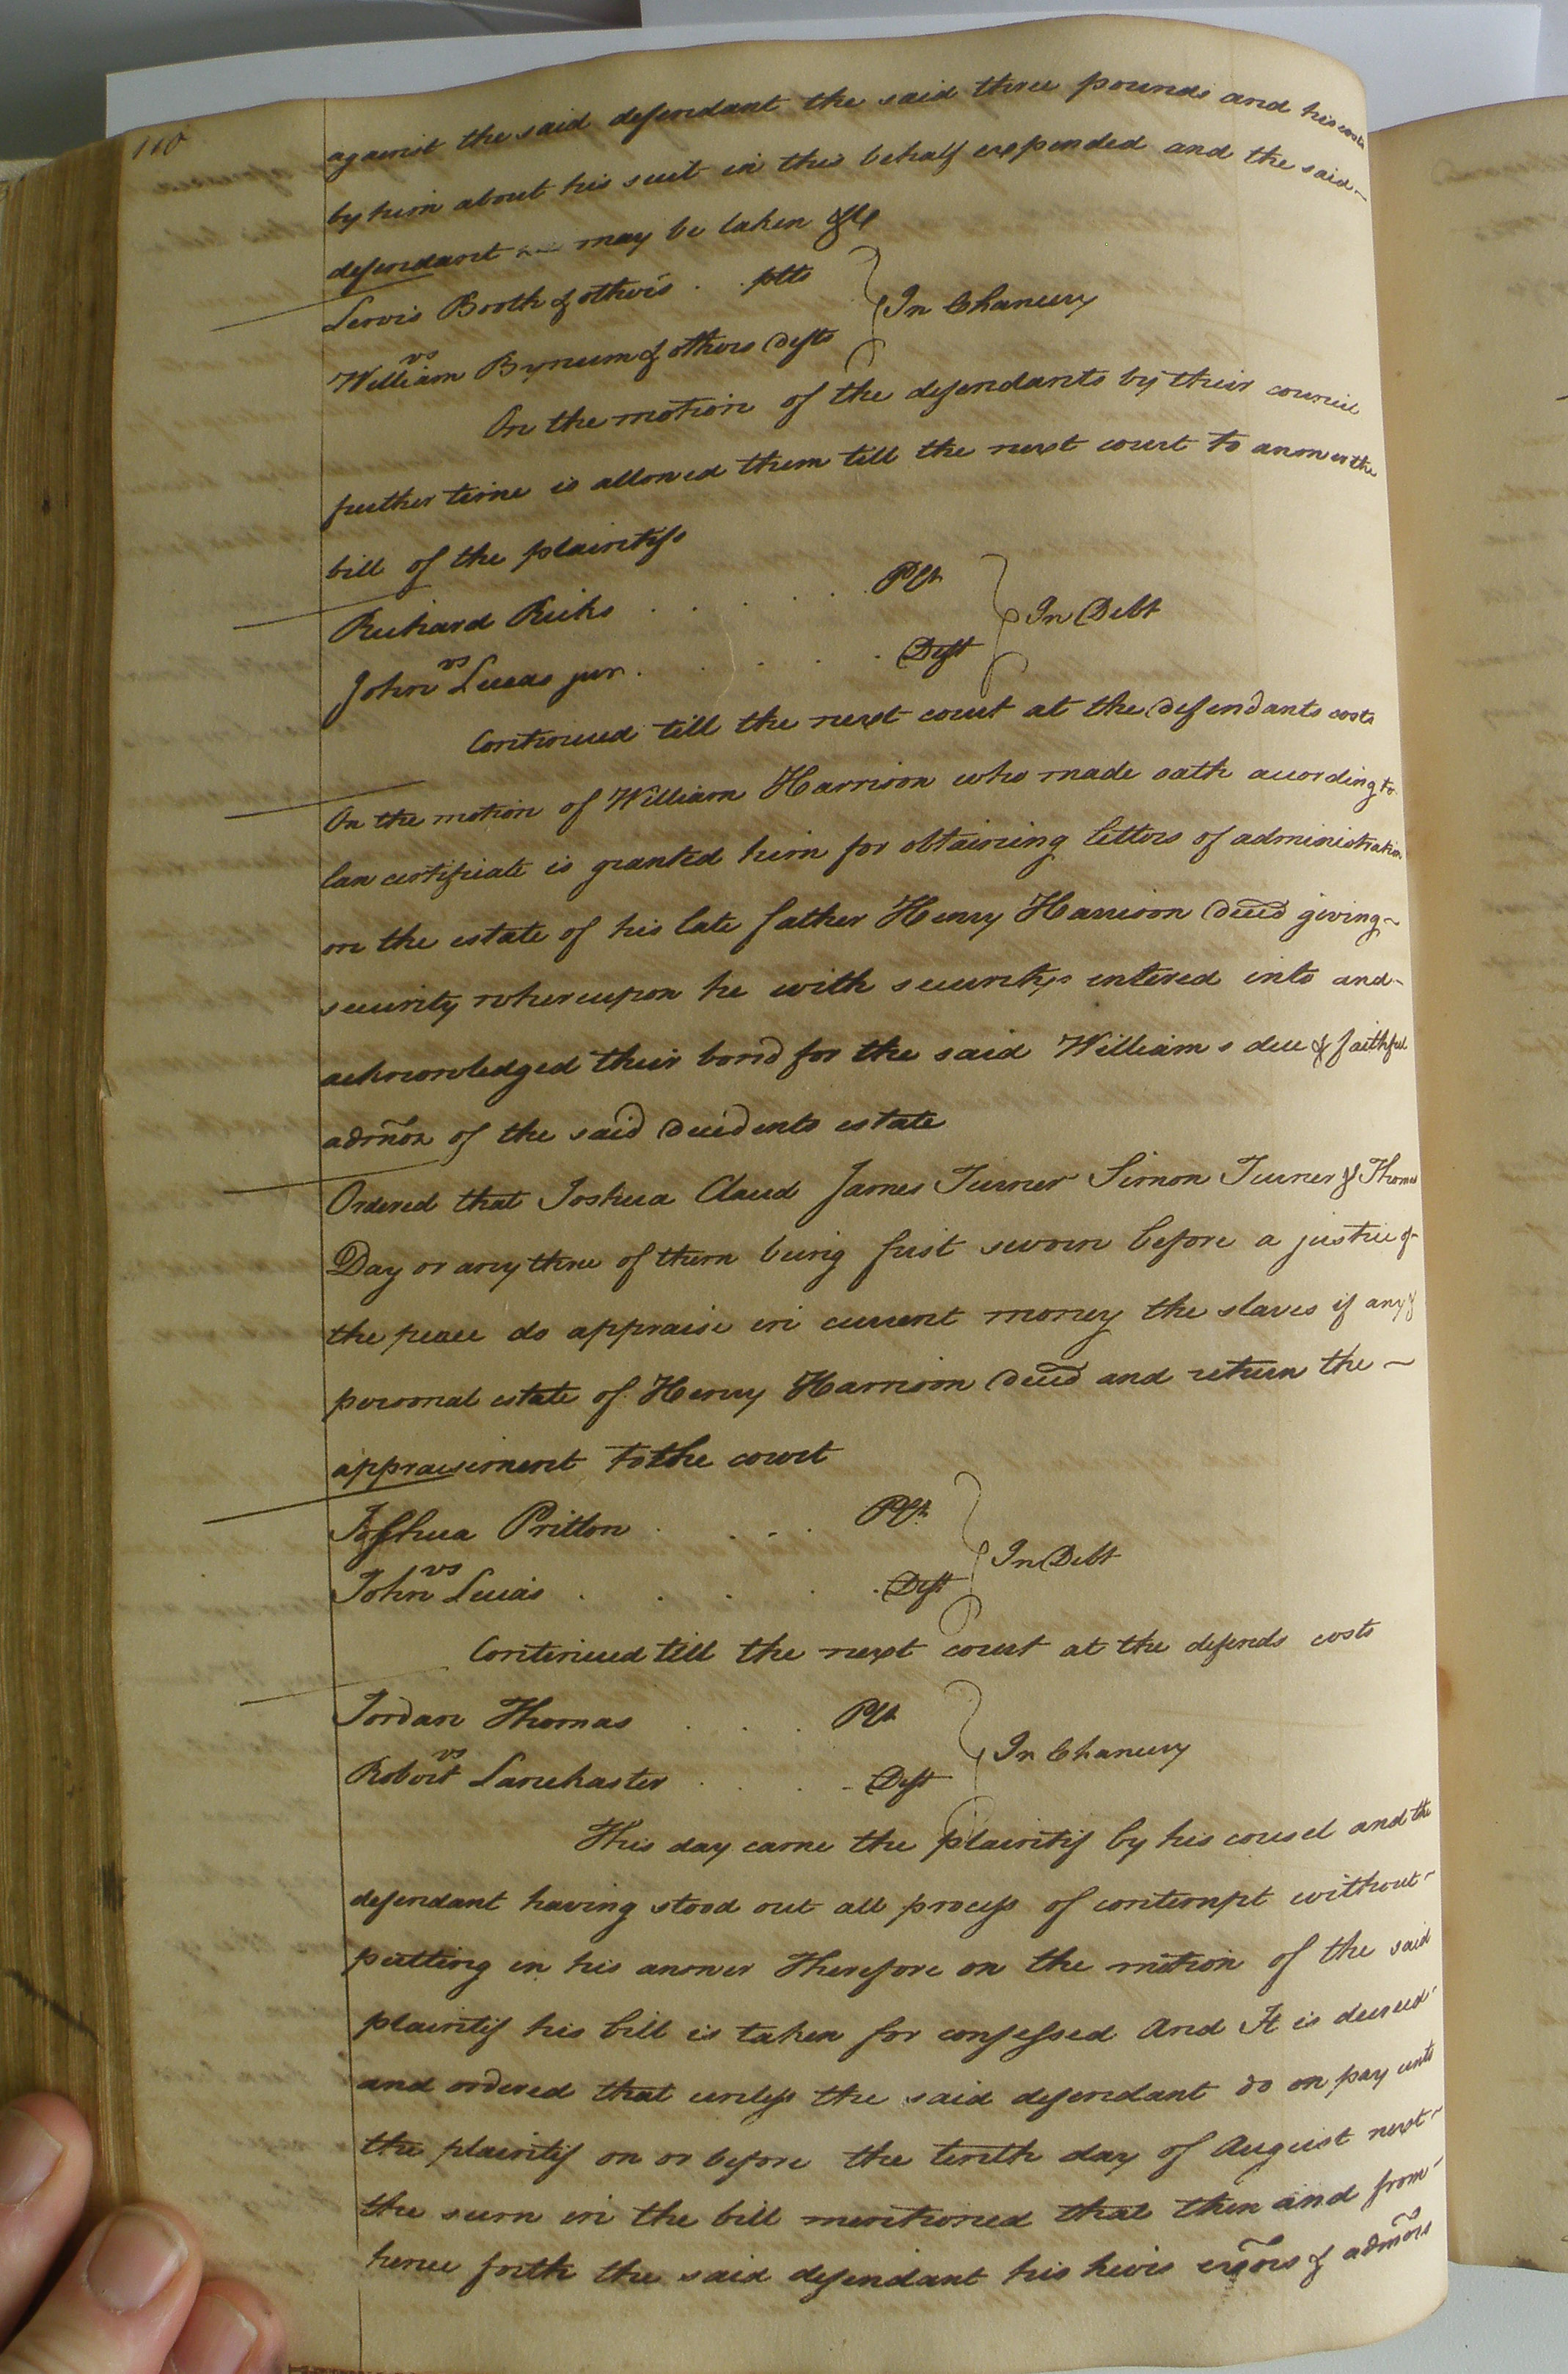 110
against the said defendant the said three pounds and his costs
by him about his suit in this behalf expended and the said
defendant may be taken &c
Lewis Booth & others . . plts
vs
In Chancery
William Bynum & others Defts
On the motion of the defendants by their council
further time is allowed them till the next court to answer the
bill of the plaintifs
Richard Ricks . . . . . . Plt
vs
In Debt
John Lucas jur . . . . . Deft
Continued till the next court at the defendants costs
On the motion of William Harrison who made oath according to
law certificate is granted him for obtaining letters of administration
on the estate of his late father Henry Harrison Deced giving
security whereupon he with securitys entered into and
acknowledged their bond for the said Williams due & faithful
admon of the said decedents estate
Ordered that Joshua Claud James Turner Simon Turner & Thomas
Day or any three of them being first sworn before a justice of
the peace do appraise in current money the slaves if any &
personal estate of Henry Harrison deced and return the
appraisement to the court
Joshua Pritlon . . . . Plt
vs
In Debt
John Lucas . . . . . Deft
Continued till the next court at the defends costs
Jordan Thomas . . . Plt
vs
In Chancery
Robert Lanchaster . . . Deft
This day came the plaintif by his cousel and the
defendant having stood out all process of contempt without
putting in his answer Therefore on the motion of the said
plaintif his bill is taken for confessed And It is decreed
and ordered that unless the said defendant do on pay unto
the plaintif on or before the tenth day of August next
the sum in the bill mentioned that then and from
hence forth the said defendant his heirs exors & admors